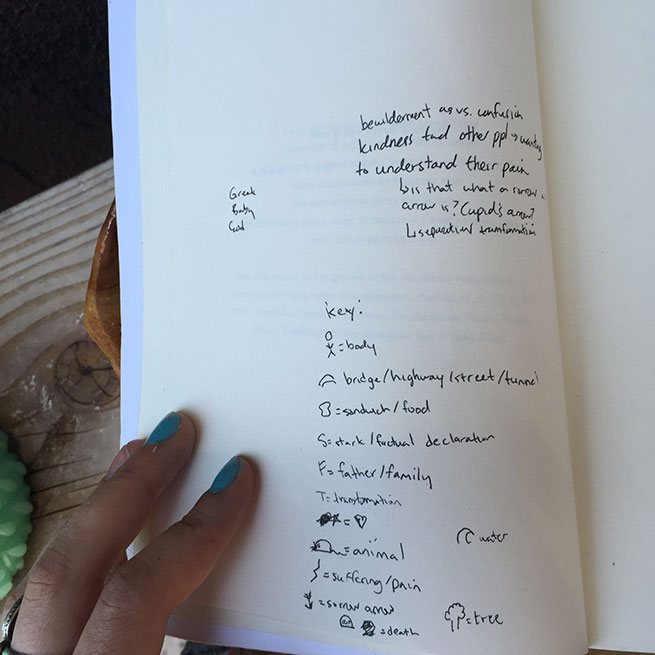 bewilderment as vs. confusion
kindness twd other ppl → wanting
to understand their pain
↳ is that what a sorrow
arrow is? Cupid's arrow?
↳ sequential transformation
Greek
Baby
God
key:
= body
bridge/highway/street/tunnel
= sandwich/food
S = stark/factual declaration
F = father/family
T = transformation
= ♡
= animal
water
= suffering/pain
= sorrow arrow
= tree
= death